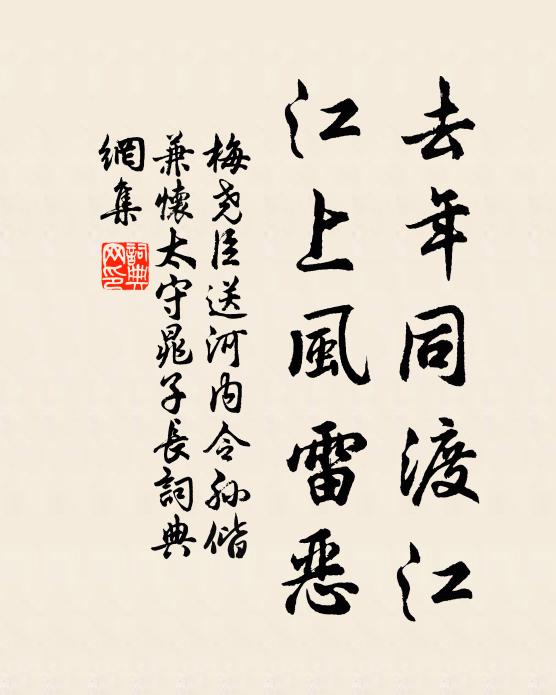 去年同渡江
江上風雷惡
梅尧臣送河内令孙偕
兼懷太守晁子長詞典
網集
詞典
网印